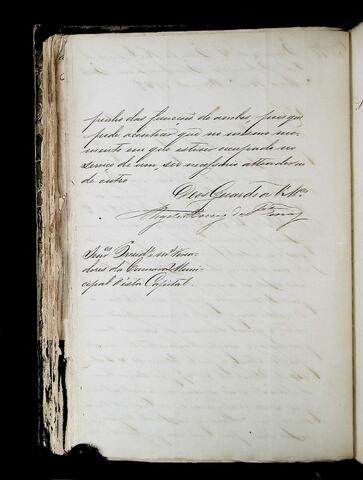 penho das funcções de ambos, pois que
pode acontecer que no mesmo mo-
mento em que estiver occupado no
serviço de um, ser necessario attender a
do outro.
Deos Guarde a V. Mces
Snres Presidte e Verea-
dores da Camara Muni-
cipal d'esta Capital